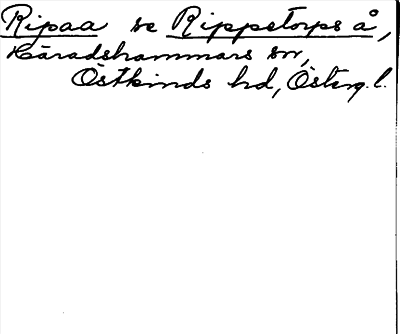 Ripaa se Rippetorps å,
Häradshammars sn,
Östkinds hd, Österg.l.